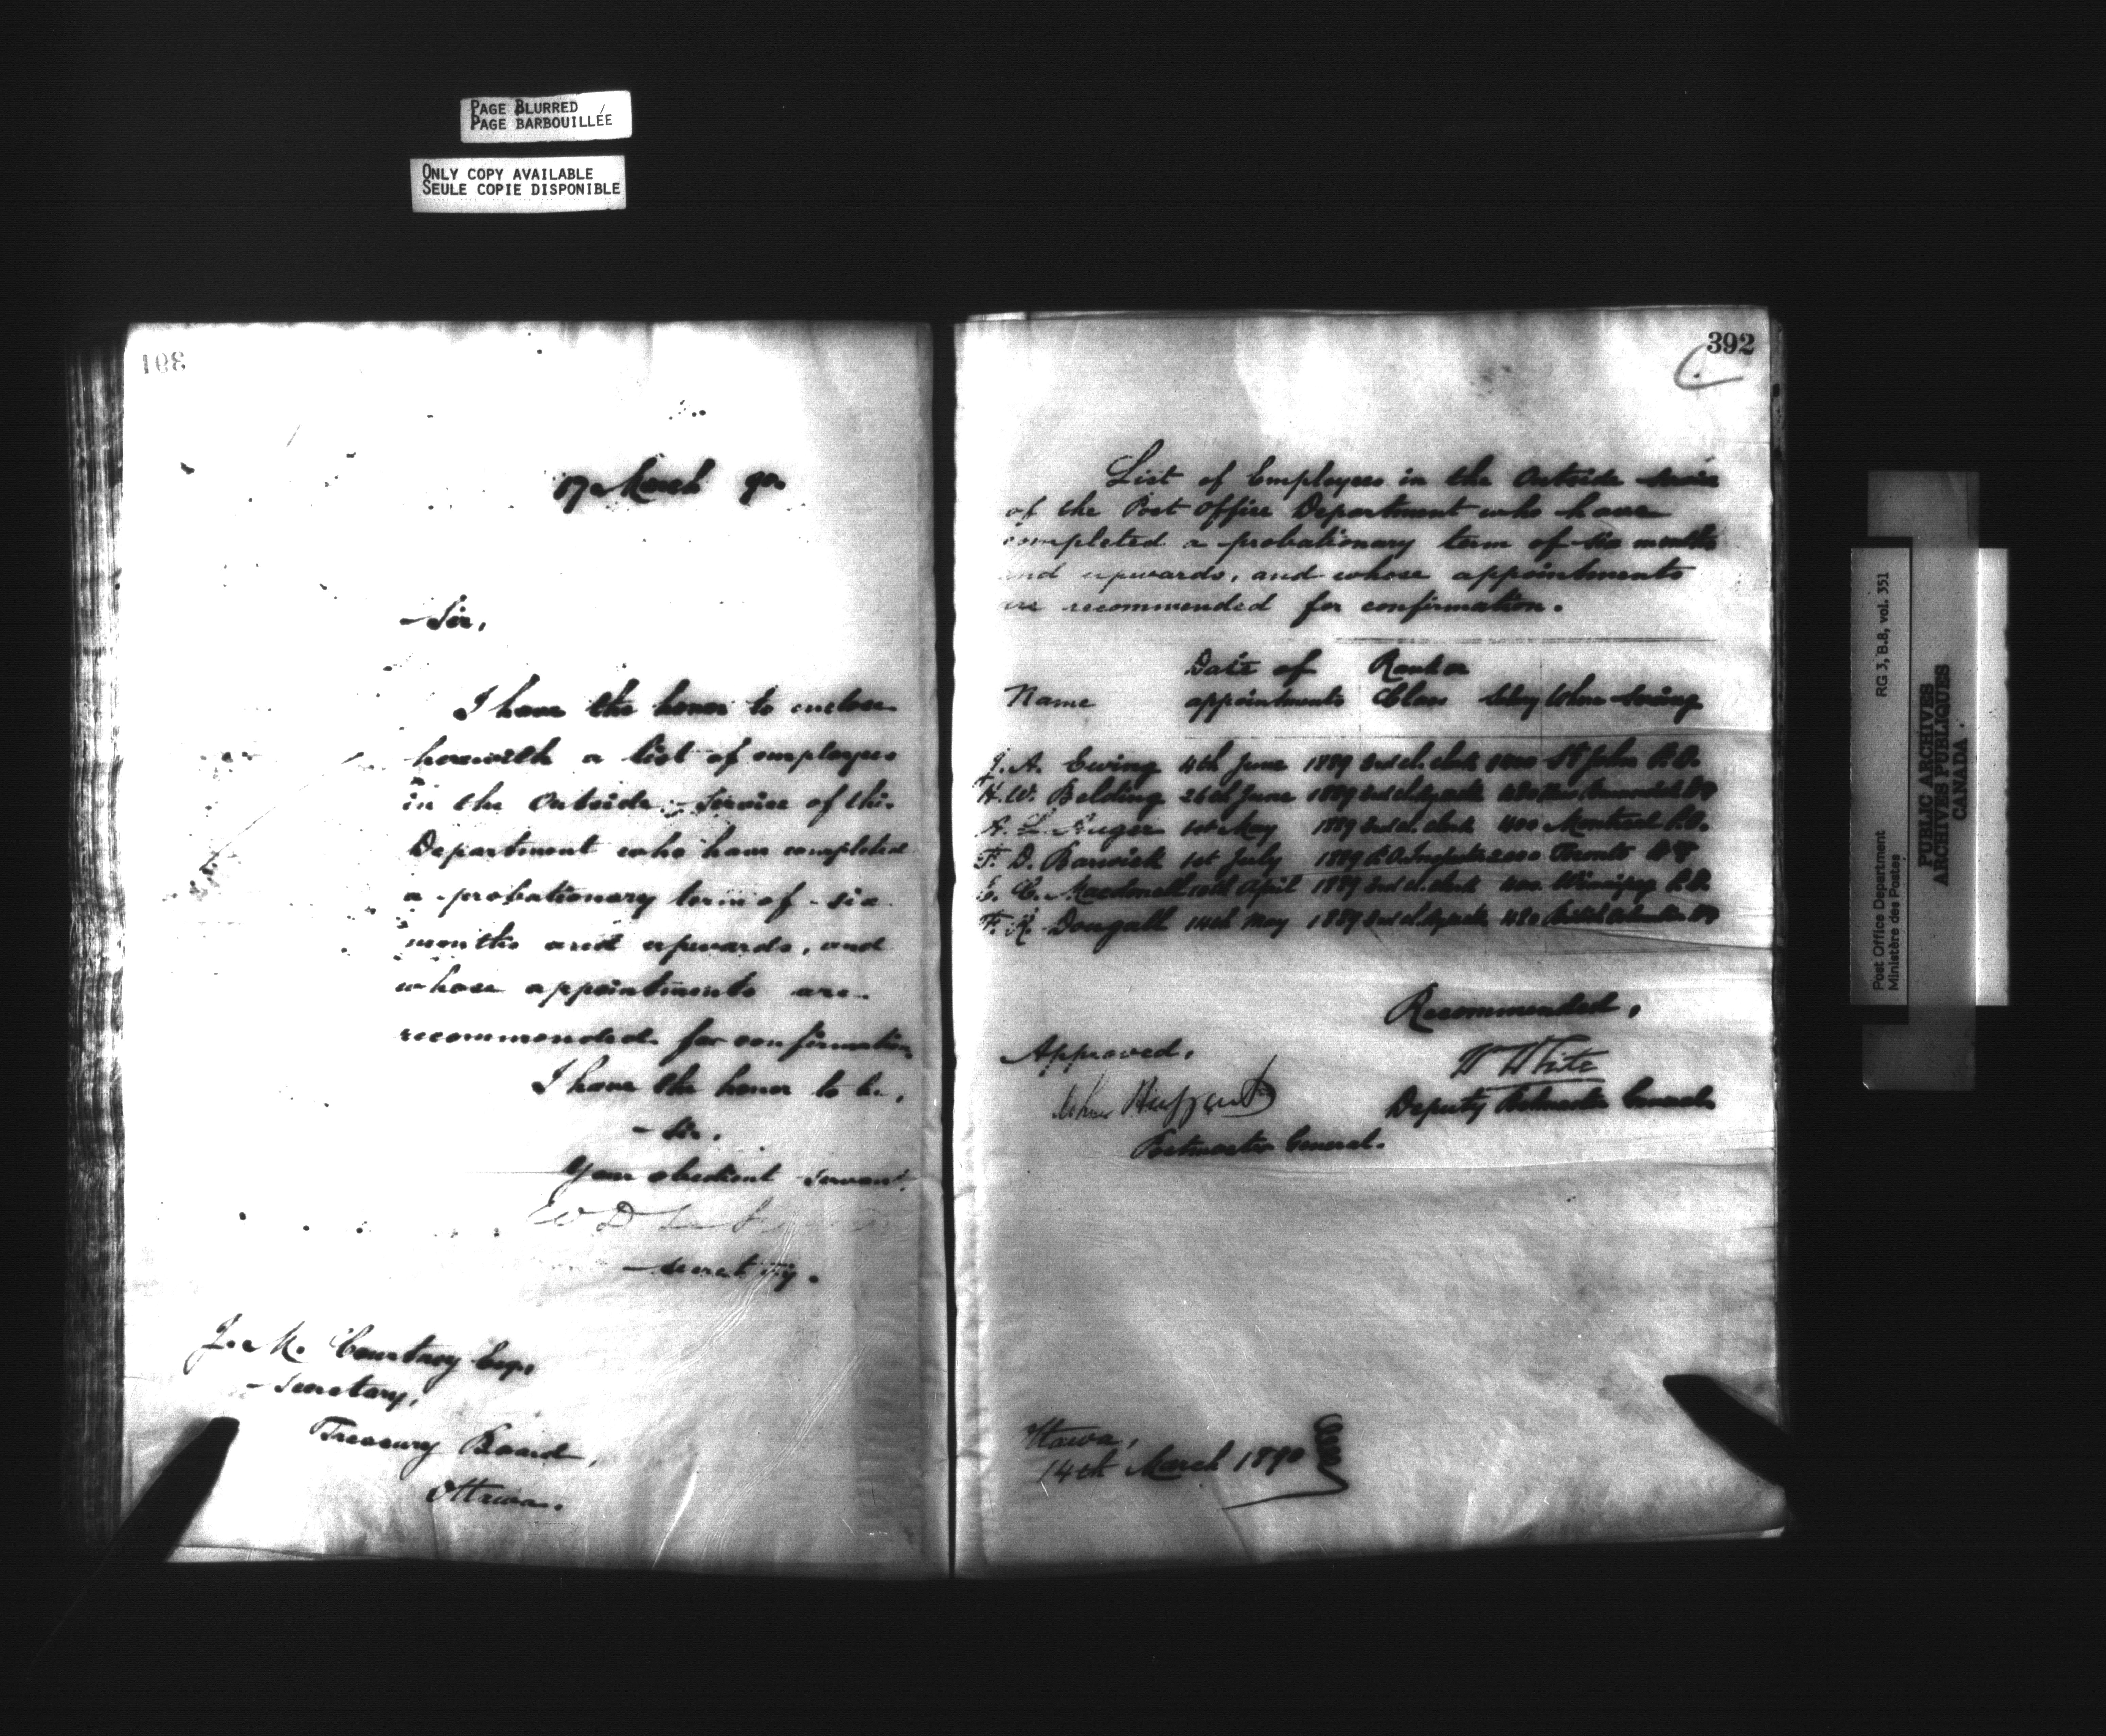 PAGE BLURRED
PAGE BARBOUILLÉE
ONLY COPY AVAILABLE
SEULE COPIE DISPONIBLE
391
17 March 90.
Sir,
I have the honor to enclose
herewith a list of employees
in the Outside Service of this
Department who have completed
a probationary term of six
months and upwards, and
whose appointments are
recommended for confirmation
I have the honor to be,
Sir,
Your obedient servant.
W D
Secretary.
J. M. Courtney Esq.
Secretary,
Treasury Board,
Ottawa.
392
List of Employees in the Outside Service
of the Post Office Department who have
completed a probationary term of six months
and upwards, and whose appointments
are recommended for confirmation.
Name Date of appointments Rank or Class Salary Where Serving
J. A. Ewing 4th June 1889 3rd cl. clerk St John P.O.
H. W. Belding 26th June 1889 3rd cl. 480 New Brunswick
A. L. Auger 1st May 1889 3rd cl. clerk 400 Montreal P.O.
F. D. Barwick 1st July 1889 P.O. Inspector 2000 Toronto
E. C. Macdonell 10th April 1889 3rd cl. clerk 400 Winnipeg P.O.
F. R. Dougall 14th May 1889 3rd cl. 480 British Columbia
Recommended,
W White
Deputy Postmaster General.
Approved,
John Haggart
Postmaster General.
Ottawa,
14th March 1890
Post Office Department
Ministère des Postes
RG 3, B.8, vol. 351
PUBLIC ARCHIVES
ARCHIVES PUBLIQUES
CANADA